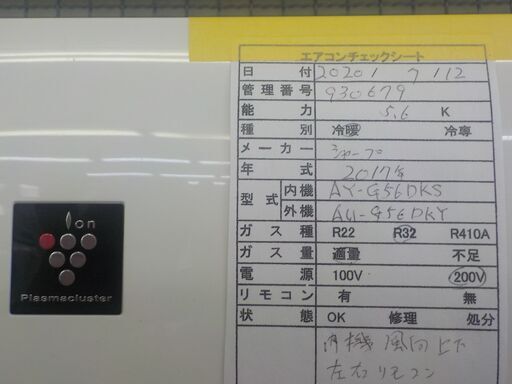 エアコンチェックシート
日付 2020 1 7 112
管理番号 930679
能力 5.6 K
種別 冷暖 冷専
メーカー シャープ
年式 2017年
型式 内機 AY-G56DKS
外機 AU-G56DKY
ガス種 R22 R32 R410A
ガス量 適量 不足
電源 100V 200V
リモコン 有 無
状態 OK 修理 処分
内機 風向上下
左右リモコン
ion
Plasmacluster